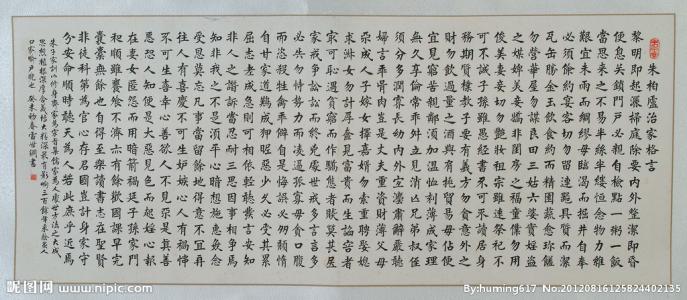 朱柏廬治家格言
黎明即起灑掃庭除要內外整潔即昏
便息關鎖門戶必親自檢點一粥一飯
當思來之不易半絲半縷恒念物力維
艱宜未雨而綢繆毋臨渴而掘井自奉
必須儉約宴客切勿留連器具質而潔
瓦缶勝金玉飲食約而精園蔬愈珍饈
勿營華屋勿謀良田三姑六婆實淫盜
之媒婢美妾嬌非閨房之福童僕勿用
俊美妻妾切忌艷妝祖宗雖遠祭祀不
可不誠子孫雖愚經書不可不讀居身
務期質樸教子要有義方勿貪意外之
財勿飲過量之酒與肩挑貿易毋佔便
宜見窮苦親鄰須加溫恤刻薄成家理
無久享倫常乖舛立見消亡兄弟叔侄
須分多潤寡長幼內外宜法肅辭嚴聽
婦言乖骨肉豈是丈夫重資財薄父母
不成人子嫁女擇佳婿勿索重聘娶媳
求淑女勿計厚奩見富貴而生諂容者
最可恥遇貧窮而作驕態者賤莫甚居
家戒爭訟訟而終凶處世戒多言言多
必失勿恃勢力而凌逼孤寡毋貪口腹
而恣殺牲禽乖僻自是悔誤必多頹惰
自甘家道難成狎昵惡少久必受其累
屈志老成急則可相依輕聽發言安知
非人之譖訴當忍耐三思因事相爭焉
知非我之不是須平心暗想施惠無念
受恩莫忘凡事當留餘地得意不宜再
往人有喜慶不可生妒嫉心人有禍患
不可生喜幸心善欲人見不是真善
惡恐人知便是大惡見色而起淫心報
在妻女匿怨而用暗箭禍延子孫家門
和順雖饔飧不濟亦有餘歡國課早完
囊橐無餘自得至樂讀書志在聖賢
非徒科第為官心存君國豈計身家守
分安命順時聽天為人若此庶乎近焉
昵图网 www.nipic.com
By:huming617 No.20120816125824402135